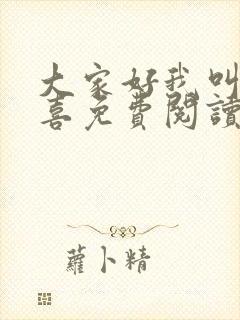 大家好我叫
喜免費閱讀
蘿卜精